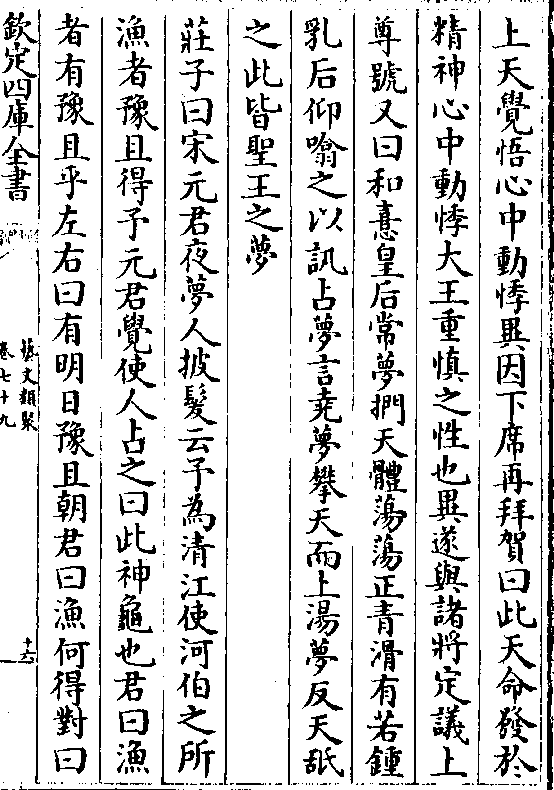 上天覺悟心中動悸異因下席再拜賀曰此天命發於
精神心中動悸大王重慎之性也異遂與諸將定議上
尊號又曰和憙皇后常夢捫天體蕩蕩正青滑有若鍾
乳后仰噏之以訊占夢言堯夢攀天而上湯夢反天䑛
之此皆聖王之夢
莊子曰宋元君夜夢人披髮云予為清江使河伯之所
漁者豫且得予元君覺使人占之曰此神龜也君曰漁
者有豫且乎左右曰有明日豫且朝君曰漁何得對曰
欽定四庫全書
藝文類聚
卷七十九
十六